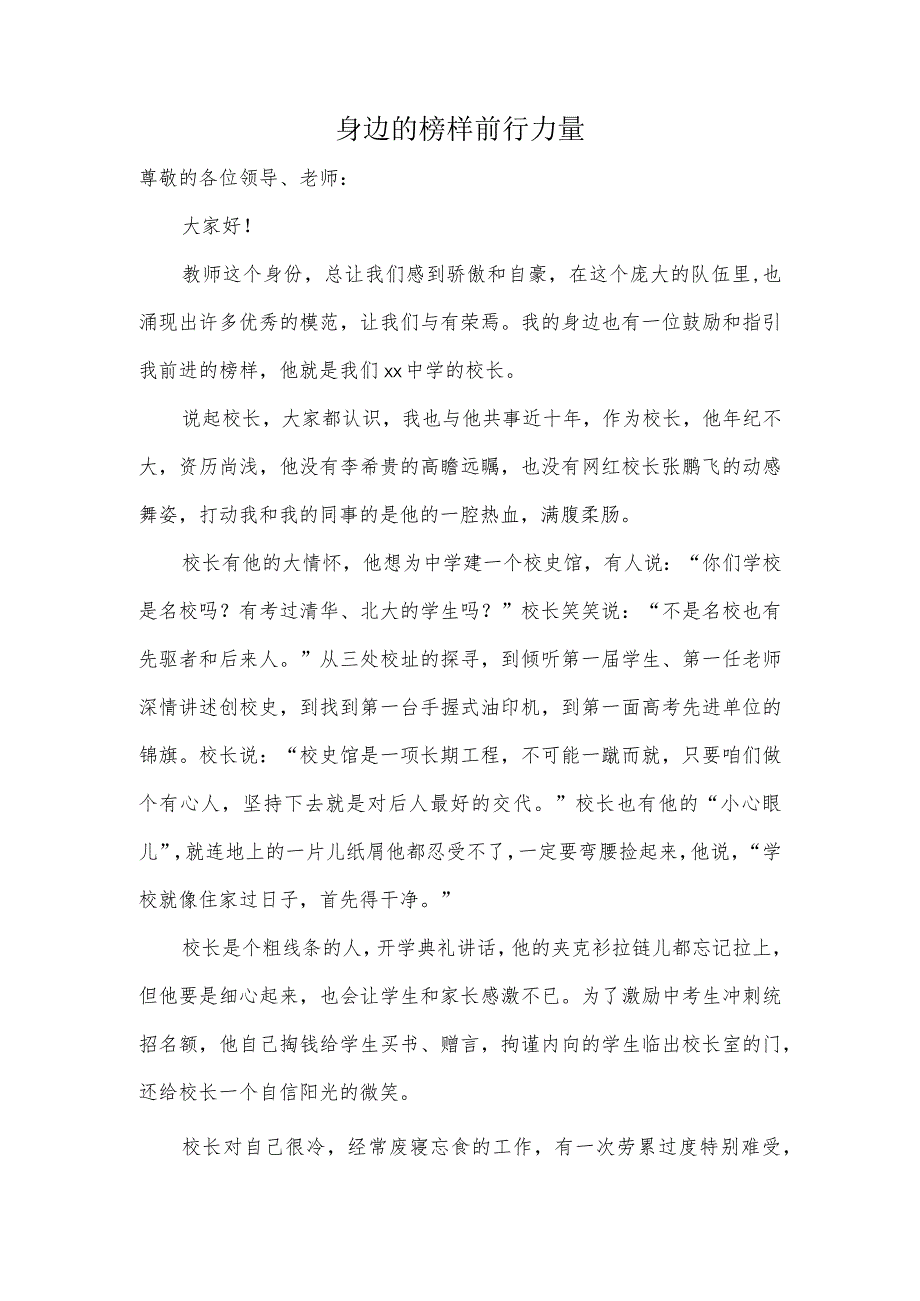 身边的榜样前行力量
尊敬的各位领导、老师：
大家好！
教师这个身份，总让我们感到骄傲和自豪，在这个庞大的队伍里,也
涌现出许多优秀的模范，让我们与有荣焉。我的身边也有一位鼓励和指引
我前进的榜样，他就是我们 xx 中学的校长。
说起校长，大家都认识，我也与他共事近十年，作为校长，他年纪不
大，资历尚浅，他没有李希贵的高瞻远瞩，也没有网红校长张鹏飞的动感
舞姿，打动我和我的同事的是他的一腔热血，满腹柔肠。
校长有他的大情怀，他想为中学建一个校史馆，有人说：“你们学校
是名校吗？有考过清华、北大的学生吗？”校长笑笑说：“不是名校也有
先驱者和后来人。”从三处校址的探寻，到倾听第一届学生、第一任老师
深情讲述创校史，到找到第一台手握式油印机，到第一面高考先进单位的
锦旗。校长说：“校史馆是一项长期工程，不可能一蹴而就，只要咱们做
个有心人，坚持下去就是对后人最好的交代。”校长也有他的“小心眼
儿”,就连地上的一片儿纸屑他都忍受不了,一定要弯腰捡起来,他说，“学
校就像住家过日子，首先得干净。”
校长是个粗线条的人，开学典礼讲话，他的夹克衫拉链儿都忘记拉上，
但他要是细心起来，也会让学生和家长感激不已。为了激励中考生冲刺统
招名额，他自己掏钱给学生买书、赠言，拘谨内向的学生临出校长室的门，
还给校长一个自信阳光的微笑。
校长对自己很冷，经常废寝忘食的工作，有一次劳累过度特别难受，